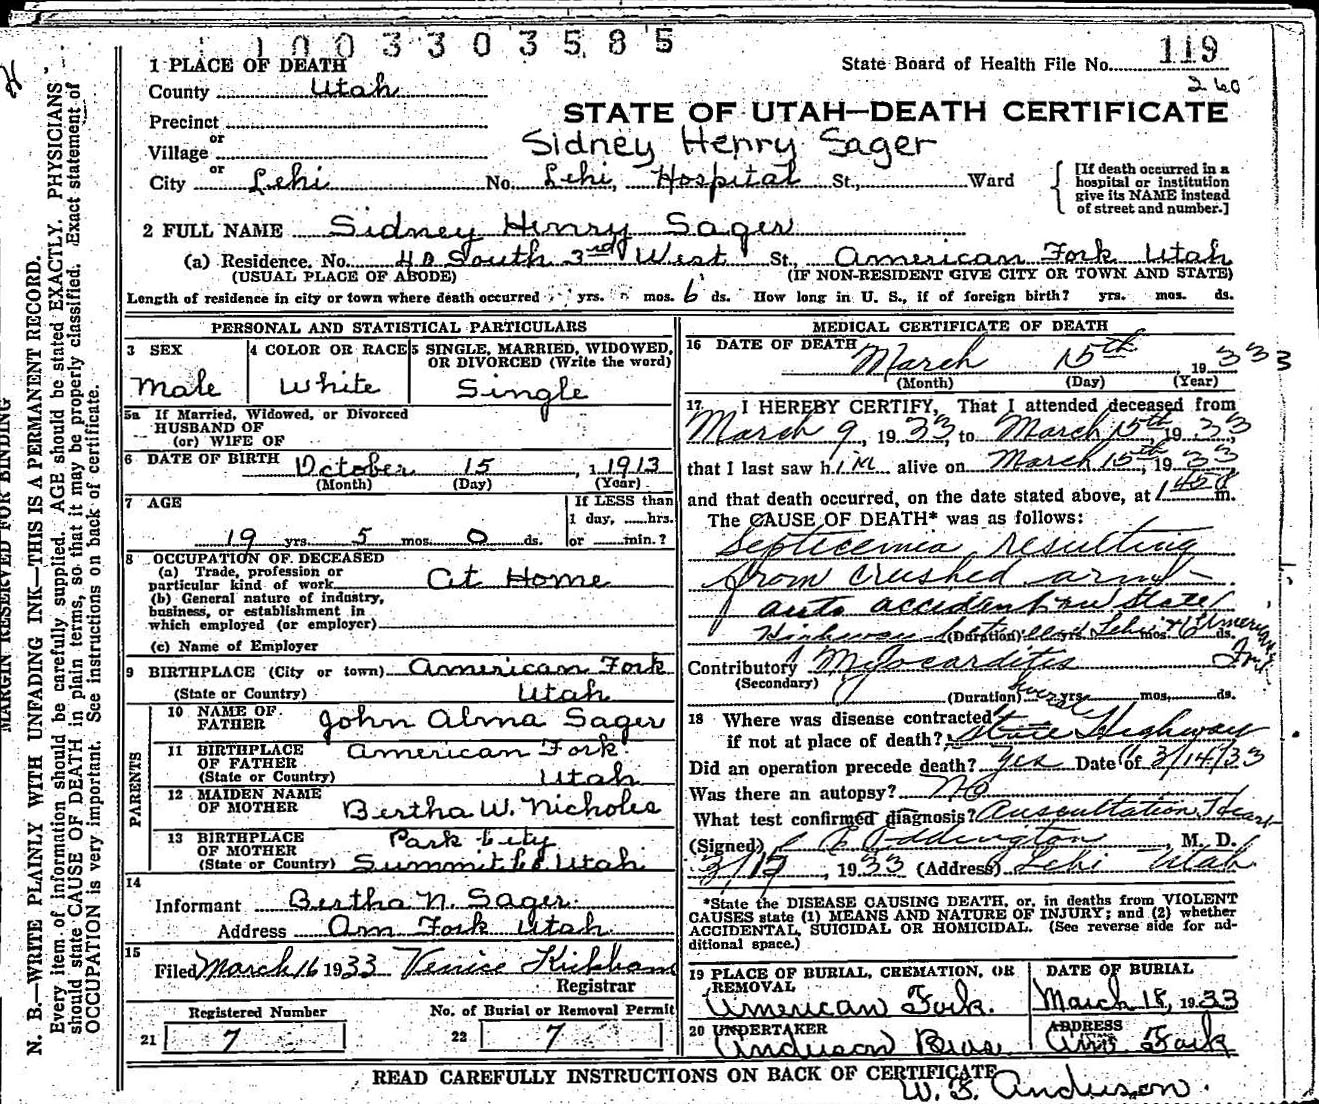 1003303585
119
State Board of Health File No.
260
1 PLACE OF DEATH
County Utah
STATE OF UTAH—DEATH CERTIFICATE
Precinct
or
Village
Sidney Henry Sager
or
City Lehi No. Lehi, Hospital St., Ward
[If death occurred in a
hospital or institution
give its NAME instead
of street and number.]
2 FULL NAME Sidney Henry Sager
(a) Residence, No. 40 South 3rd West St. American Fork Utah
(USUAL PLACE OF ABODE) (IF NON-RESIDENT GIVE CITY OR TOWN AND STATE)
Length of residence in city or town where death occurred yrs. mos. 6 ds. How long in U. S., if of foreign birth? yrs. mos. ds.
PERSONAL AND STATISTICAL PARTICULARS
3 SEX
Male
4 COLOR OR RACE
White
5 SINGLE, MARRIED, WIDOWED,
OR DIVORCED (Write the word)
Single
5a If Married, Widowed, or Divorced
HUSBAND OF
(or) WIFE OF
6 DATE OF BIRTH October 15, 1913
(Month) (Day) (Year)
7 AGE
19 yrs. 5 mos. 0 ds.
If LESS than
1 day, ......hrs.
or ......min.?
8 OCCUPATION OF DECEASED
(a) Trade, profession or
particular kind of work At Home
(b) General nature of industry,
business, or establishment in
which employed (or employer)
(c) Name of Employer
9 BIRTHPLACE (City or town) American Fork
(State or Country) Utah
PARENTS
10 NAME OF
FATHER John Alma Sager
11 BIRTHPLACE
OF FATHER American Fork
(State or Country) Utah
12 MAIDEN NAME
OF MOTHER Bertha W. Nicholes
13 BIRTHPLACE
OF MOTHER Park City
(State or Country) Summit Co Utah
14
Informant Bertha N. Sager
Address Am Fork Utah
15
Filed March 16 1933 Venice Kirkham
Registrar
Registered Number
21 7
No. of Burial or Removal Permit
22 7
MEDICAL CERTIFICATE OF DEATH
16 DATE OF DEATH
March 15th, 1933 3
(Month) (Day) (Year)
17 I HEREBY CERTIFY, That I attended deceased from
March 9, 1933, to March 15th, 1933,
that I last saw him alive on March 15th, 1933
and that death occurred, on the date stated above, at 1 45 m.
The CAUSE OF DEATH* was as follows:
Septicemia resulting
from crushed arm—
auto accident on State
Highway between Lehi & American Fork
(Duration) yrs. mos. ds.
Contributory Myocarditis
(Secondary)
(Duration) yrs. mos. ds.
18 Where was disease contracted
if not at place of death? State Highway
Did an operation precede death? Yes Date of 3/14/33
Was there an autopsy? No
What test confirmed diagnosis? Auscultation, Heart
(Signed) Eddington, M. D.
, 1933 (Address) Lehi Utah
*State the DISEASE CAUSING DEATH, or, in deaths from VIOLENT
CAUSES state (1) MEANS AND NATURE OF INJURY; and (2) whether
ACCIDENTAL, SUICIDAL OR HOMICIDAL. (See reverse side for ad-
ditional space.)
19 PLACE OF BURIAL, CREMATION, OR
REMOVAL
American Fork.
DATE OF BURIAL
March 18, 1933
20 UNDERTAKER
Anderson Bros
ADDRESS
Am Fork
READ CAREFULLY INSTRUCTIONS ON BACK OF CERTIFICATE
W. B. Anderson.
MARGIN RESERVED FOR BINDING
N. B.—WRITE PLAINLY WITH UNFADING INK—THIS IS A PERMANENT RECORD.
Every item of information should be carefully supplied. AGE should be stated EXACTLY. PHYSICIANS
should state CAUSE OF DEATH in plain terms, so that it may be properly classified. Exact statement of
OCCUPATION is very important. See instructions on back of certificate.